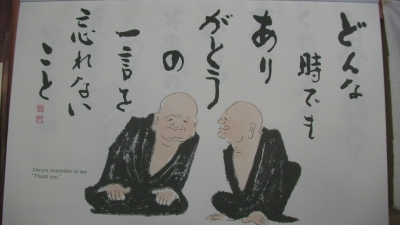 どんな
時でも
あり
がとう
の
一言を
忘れない
こと
Always remember to say
"Thank you."